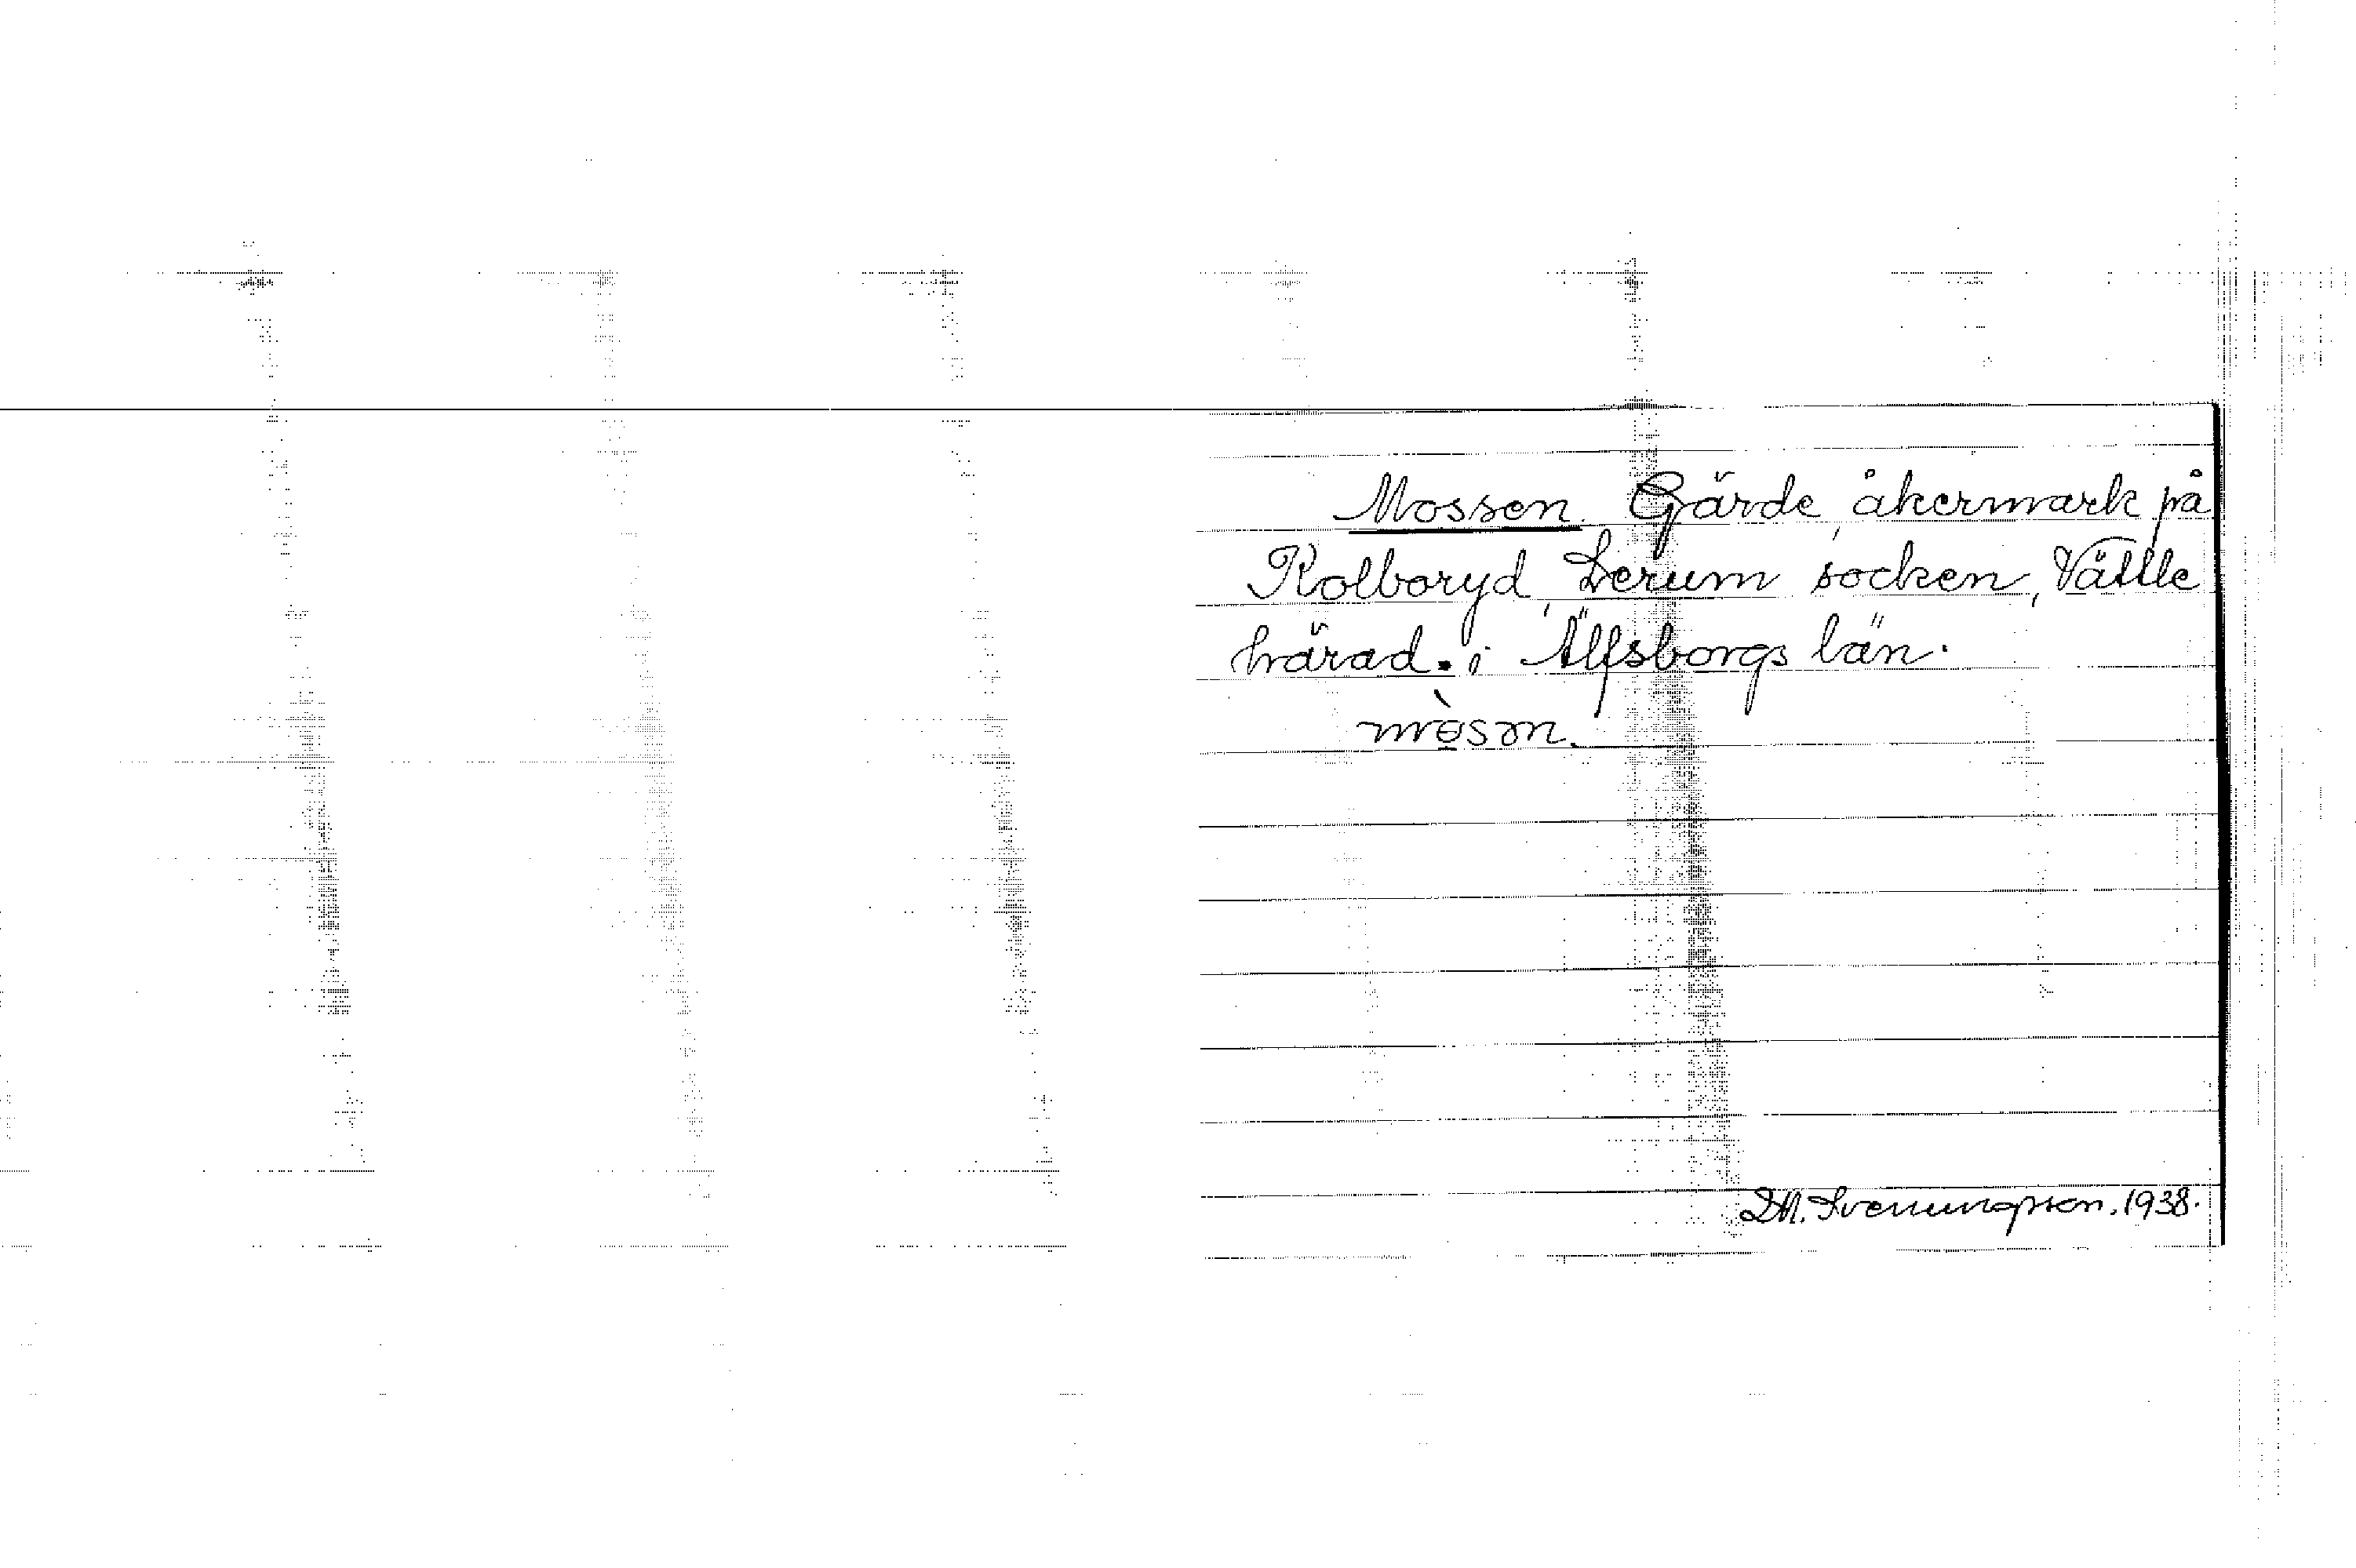 Mossen. Gärde, åkermark på
Kolboryd, Lerum socken, Vättle
härad. i Älfsborgs län.
mòsɷn.
D.M. Svenungsson. 1938.